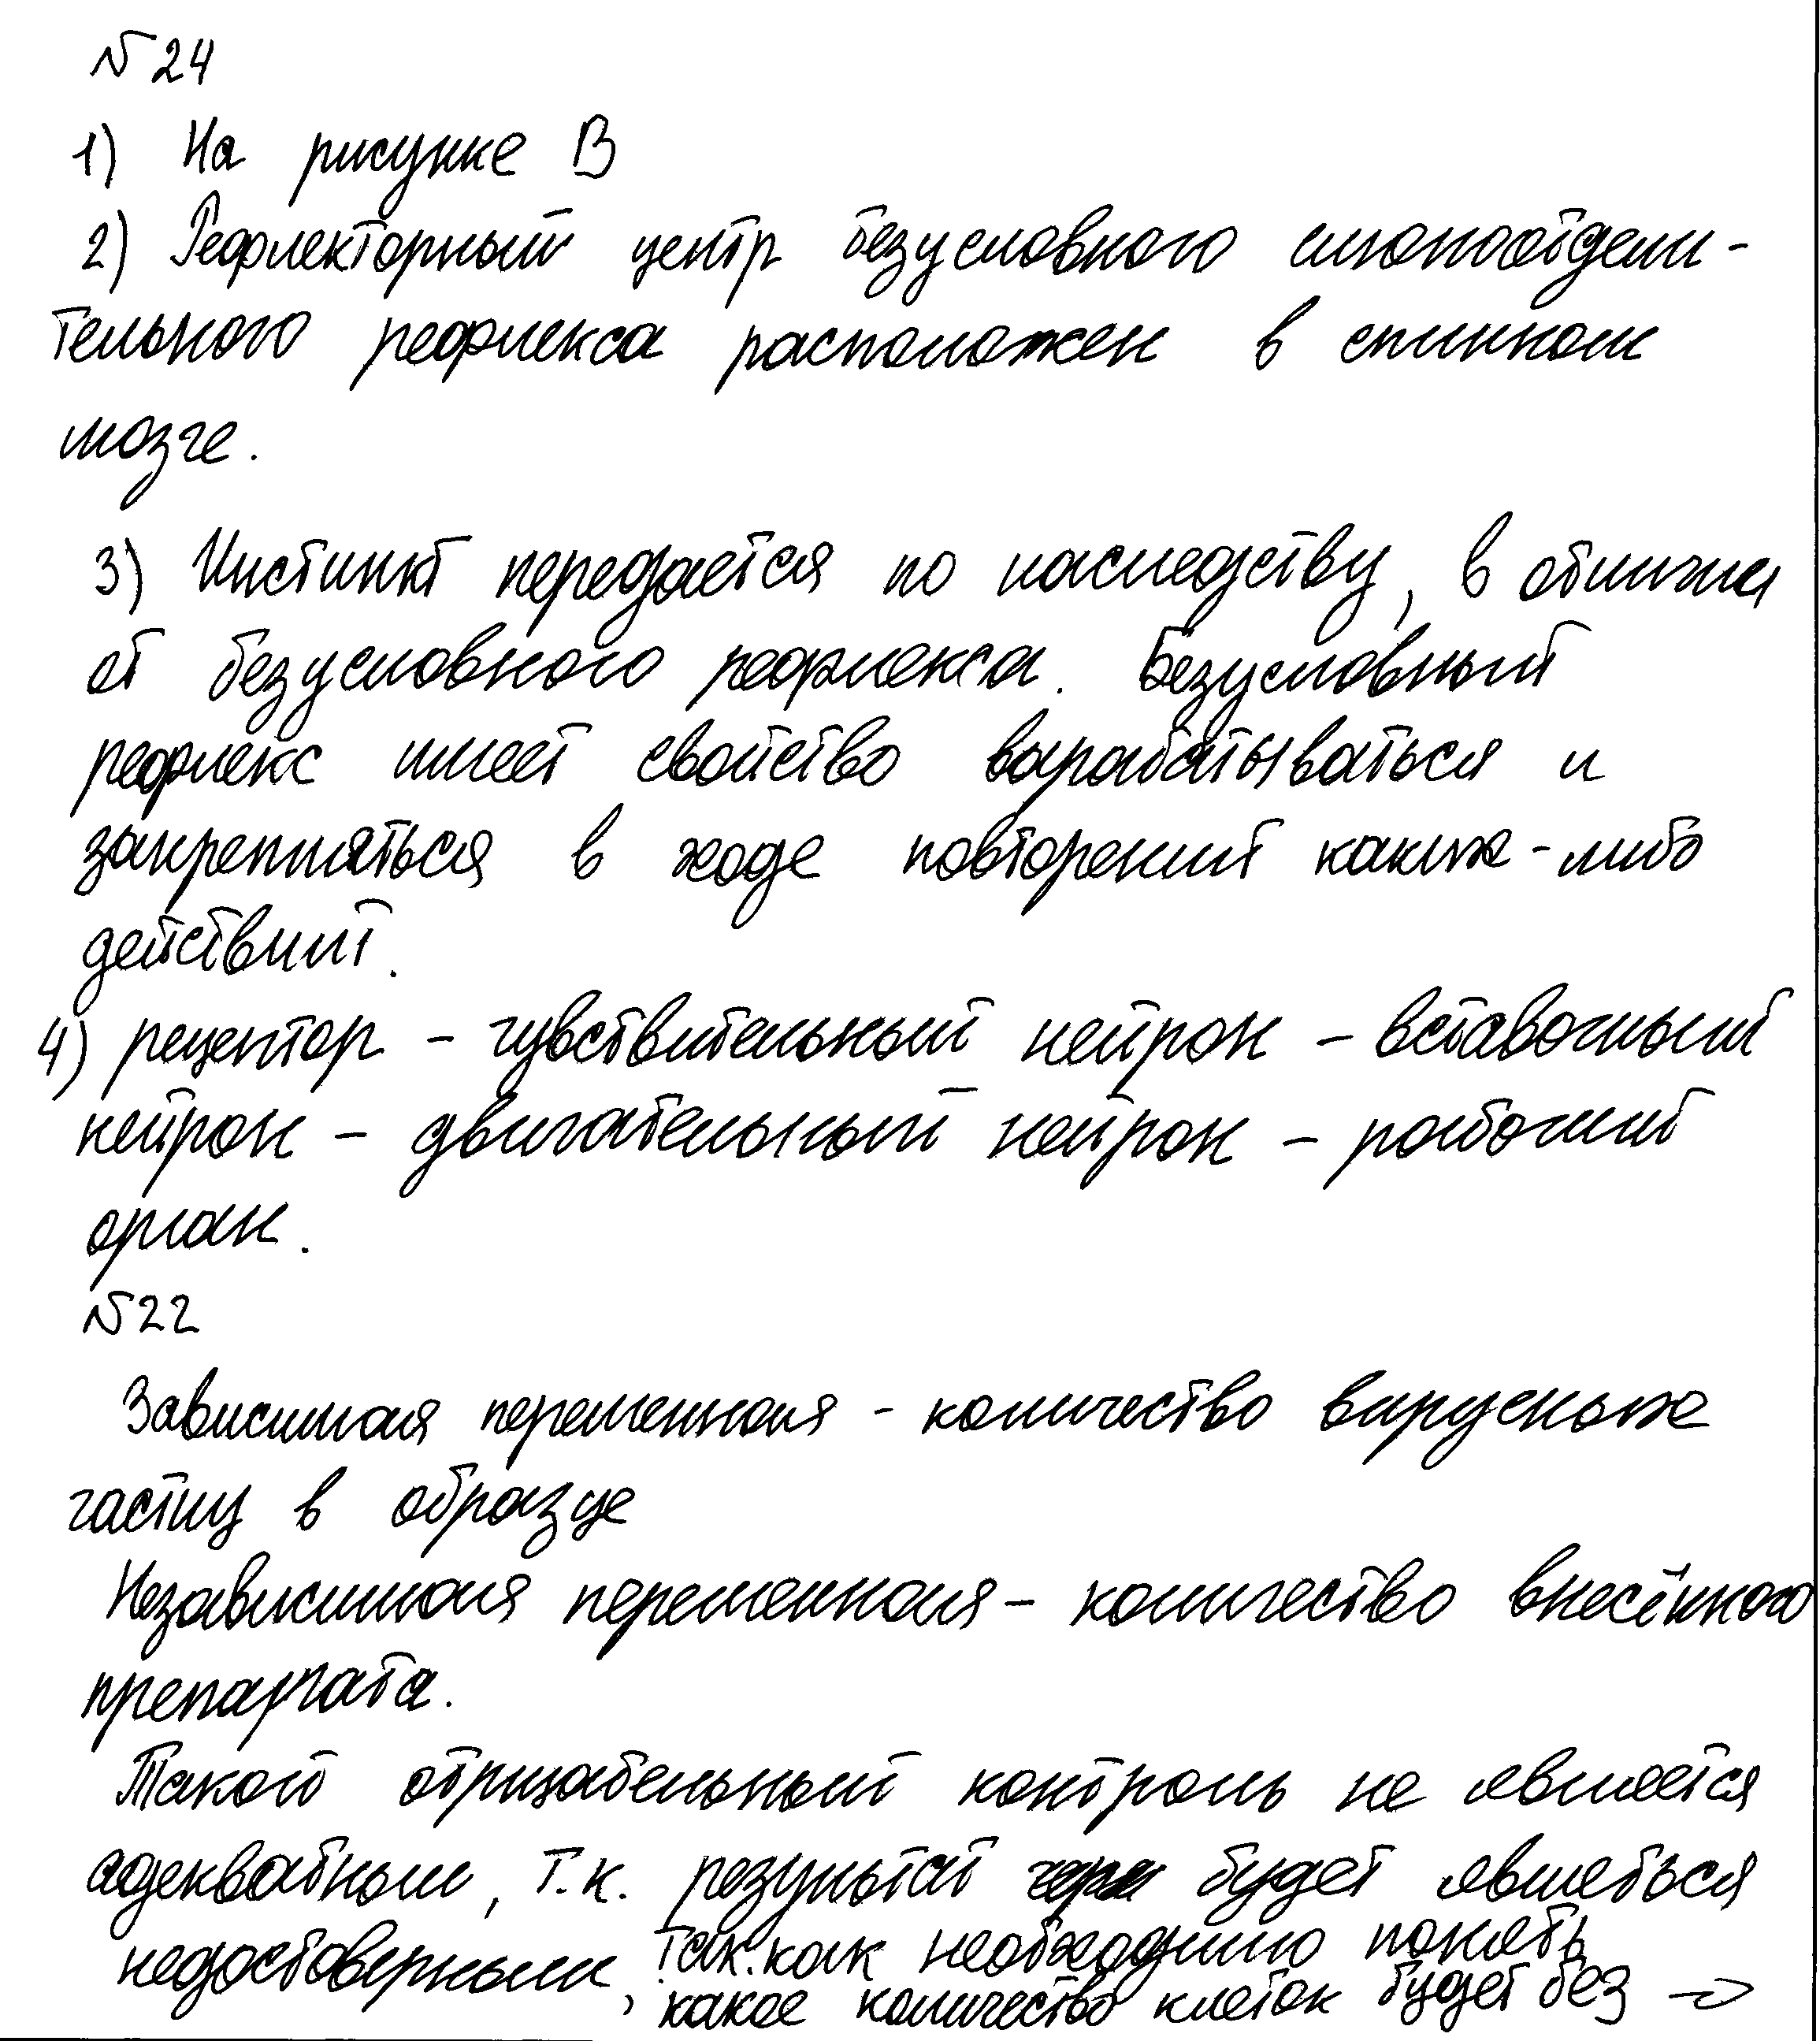 № 24
1) На рисунке В
2) Рефлекторный центр безусловного слюноотдели-
тельного рефлекса расположен в спинном
мозге.
3) Инстинкт передаётся по наследству, в отличии
от безусловного рефлекса. Безусловный
рефлекс имеет свойство вырабатываться и
закрепляться в ходе повторений каких-либо
действий.
4) рецептор - чувствительный нейрон - вставочный
нейрон - двигательный нейрон - рабочий
орган.
№22
Зависимая переменная - количество вирусных
частиц в образце
Независимая переменная - количество внесённого
препарата.
Такой отрицательный контроль не является
адекватным, т.к. результат будет являться
недостоверным, так как необходимо понять
какое количество клеток будет без →